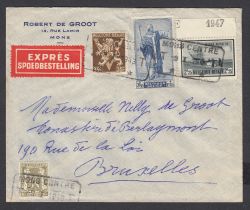 ROBERT DE GROOT
14, RUE LAMIR
MONS
1947
MONS CENTRE
EXPRÈS
SPOEDBESTELLING
Mademoiselle Nelly de Groot
Monastère de Berlaymont
190 Rue de la Loi
Bruxelles
MONS CENTRE